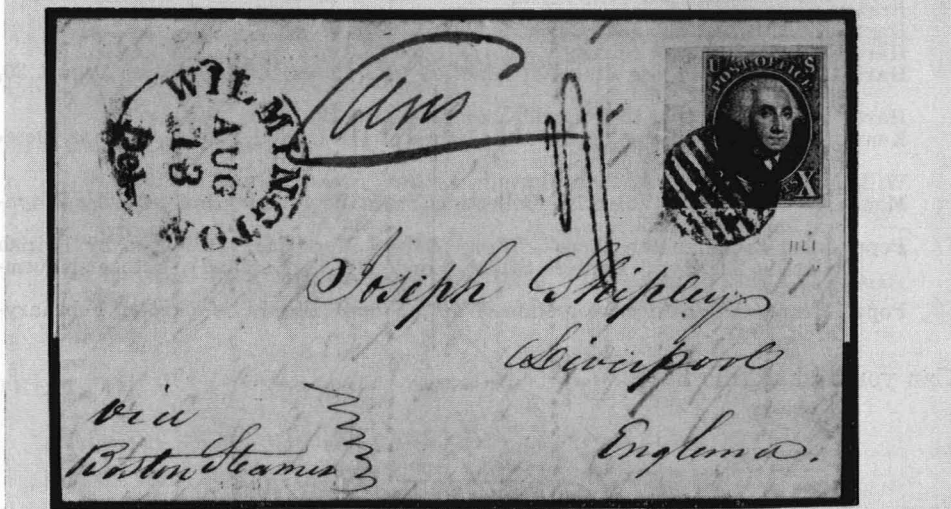 WILMINGTON
AUG
13
Del.
U S
POST OFFICE
X
Joseph Shipley
Liverpool
England.
via
Boston Steamer